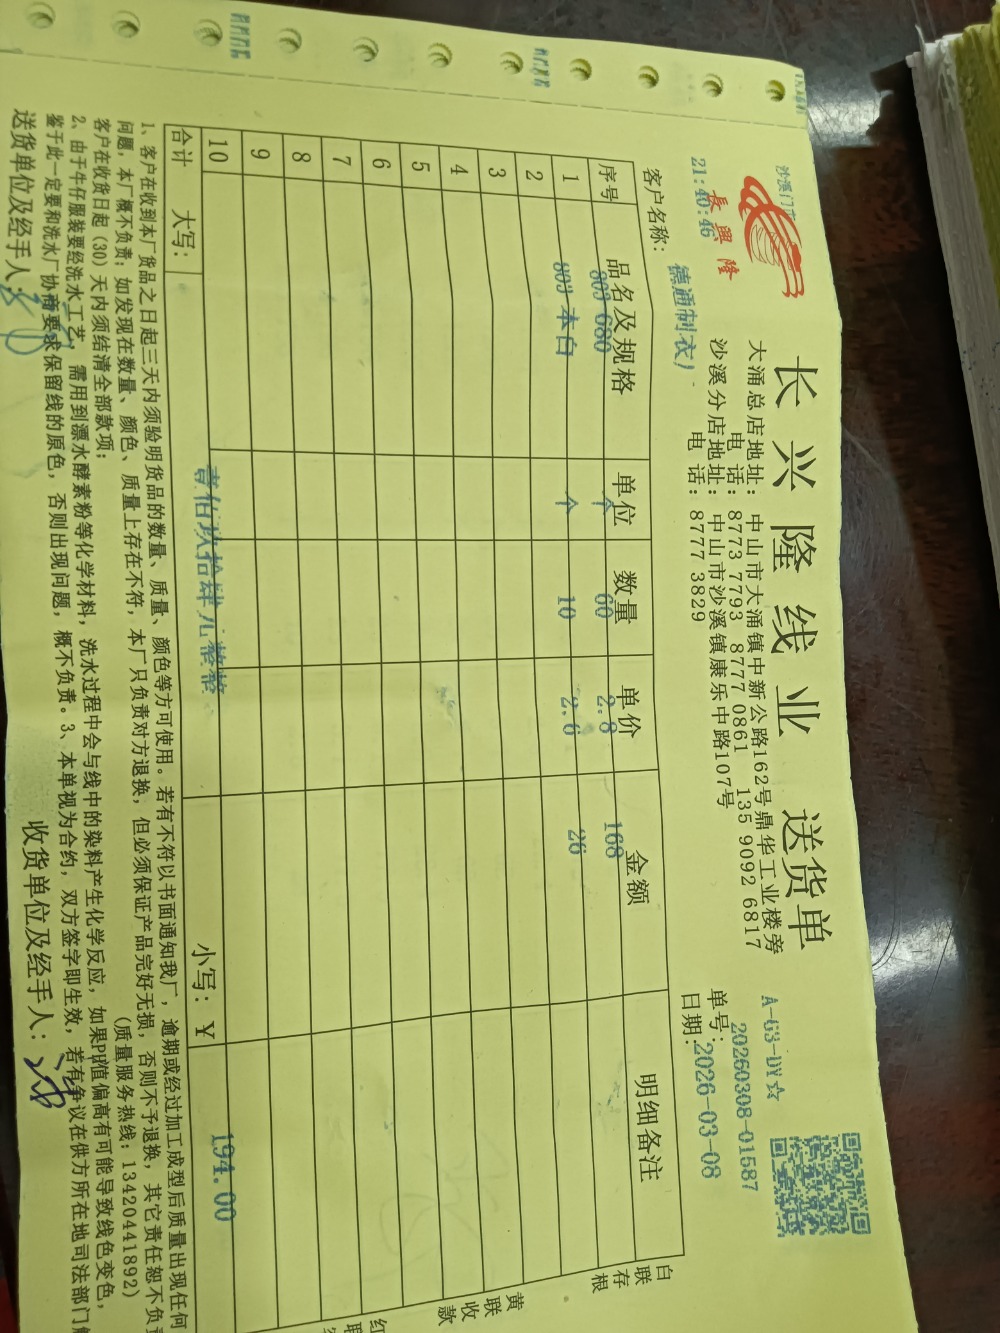 长兴隆线业 送货单
沙溪门市
長興隆
21:40:46
大涌总店地址: 中山市大涌镇中新公路162号鼎华工业楼旁
电 话: 8773 7793 8777 0861 135 9092 6817
沙溪分店地址: 中山市沙溪镇康乐中路107号
电 话: 8777 3829
A-G3-DY☆
单号: 20260308-01587
日期: 2026-03-08
客户名称: 德通制衣)
序号 品名及规格 单位 数量 单价 金额 明细备注
803 680 个 60 2.8 168
1 803 本白 个 10 2.6 26
2
3
4
5
6
7
8
9
10
合计 大写: 壹佰玖拾肆元整整 小写: Y 194.00
白联存根
黄联收款
红联
1、客户在收到本厂货品之日起三天内须验明货品的数量、质量、颜色等方可使用。若有不符以书面通知我厂，逾期或经过加工成型后质量出现任何
问题，本厂概不负责；如发现在数量、颜色、质量上存在不符，本厂只负责对方退换，但必须保证产品完好无损，否则不予退换，其它责任恕不负责
客户在收货日起（30）天内须结清全部款项； (质量服务热线: 13420441892)
2、由于牛仔服装要经洗水工艺，需用到漂水酵素粉等化学材料，洗水过程中会与线中的染料产生化学反应，如果PH值偏高有可能导致线色变色，
鉴于此一定要和洗水厂协商要求保留线的原色，否则出现问题，概不负责。3、本单视为合约，双方签字即生效，若有争议在供方所在地司法部门
送货单位及经手人: 收货单位及经手人: